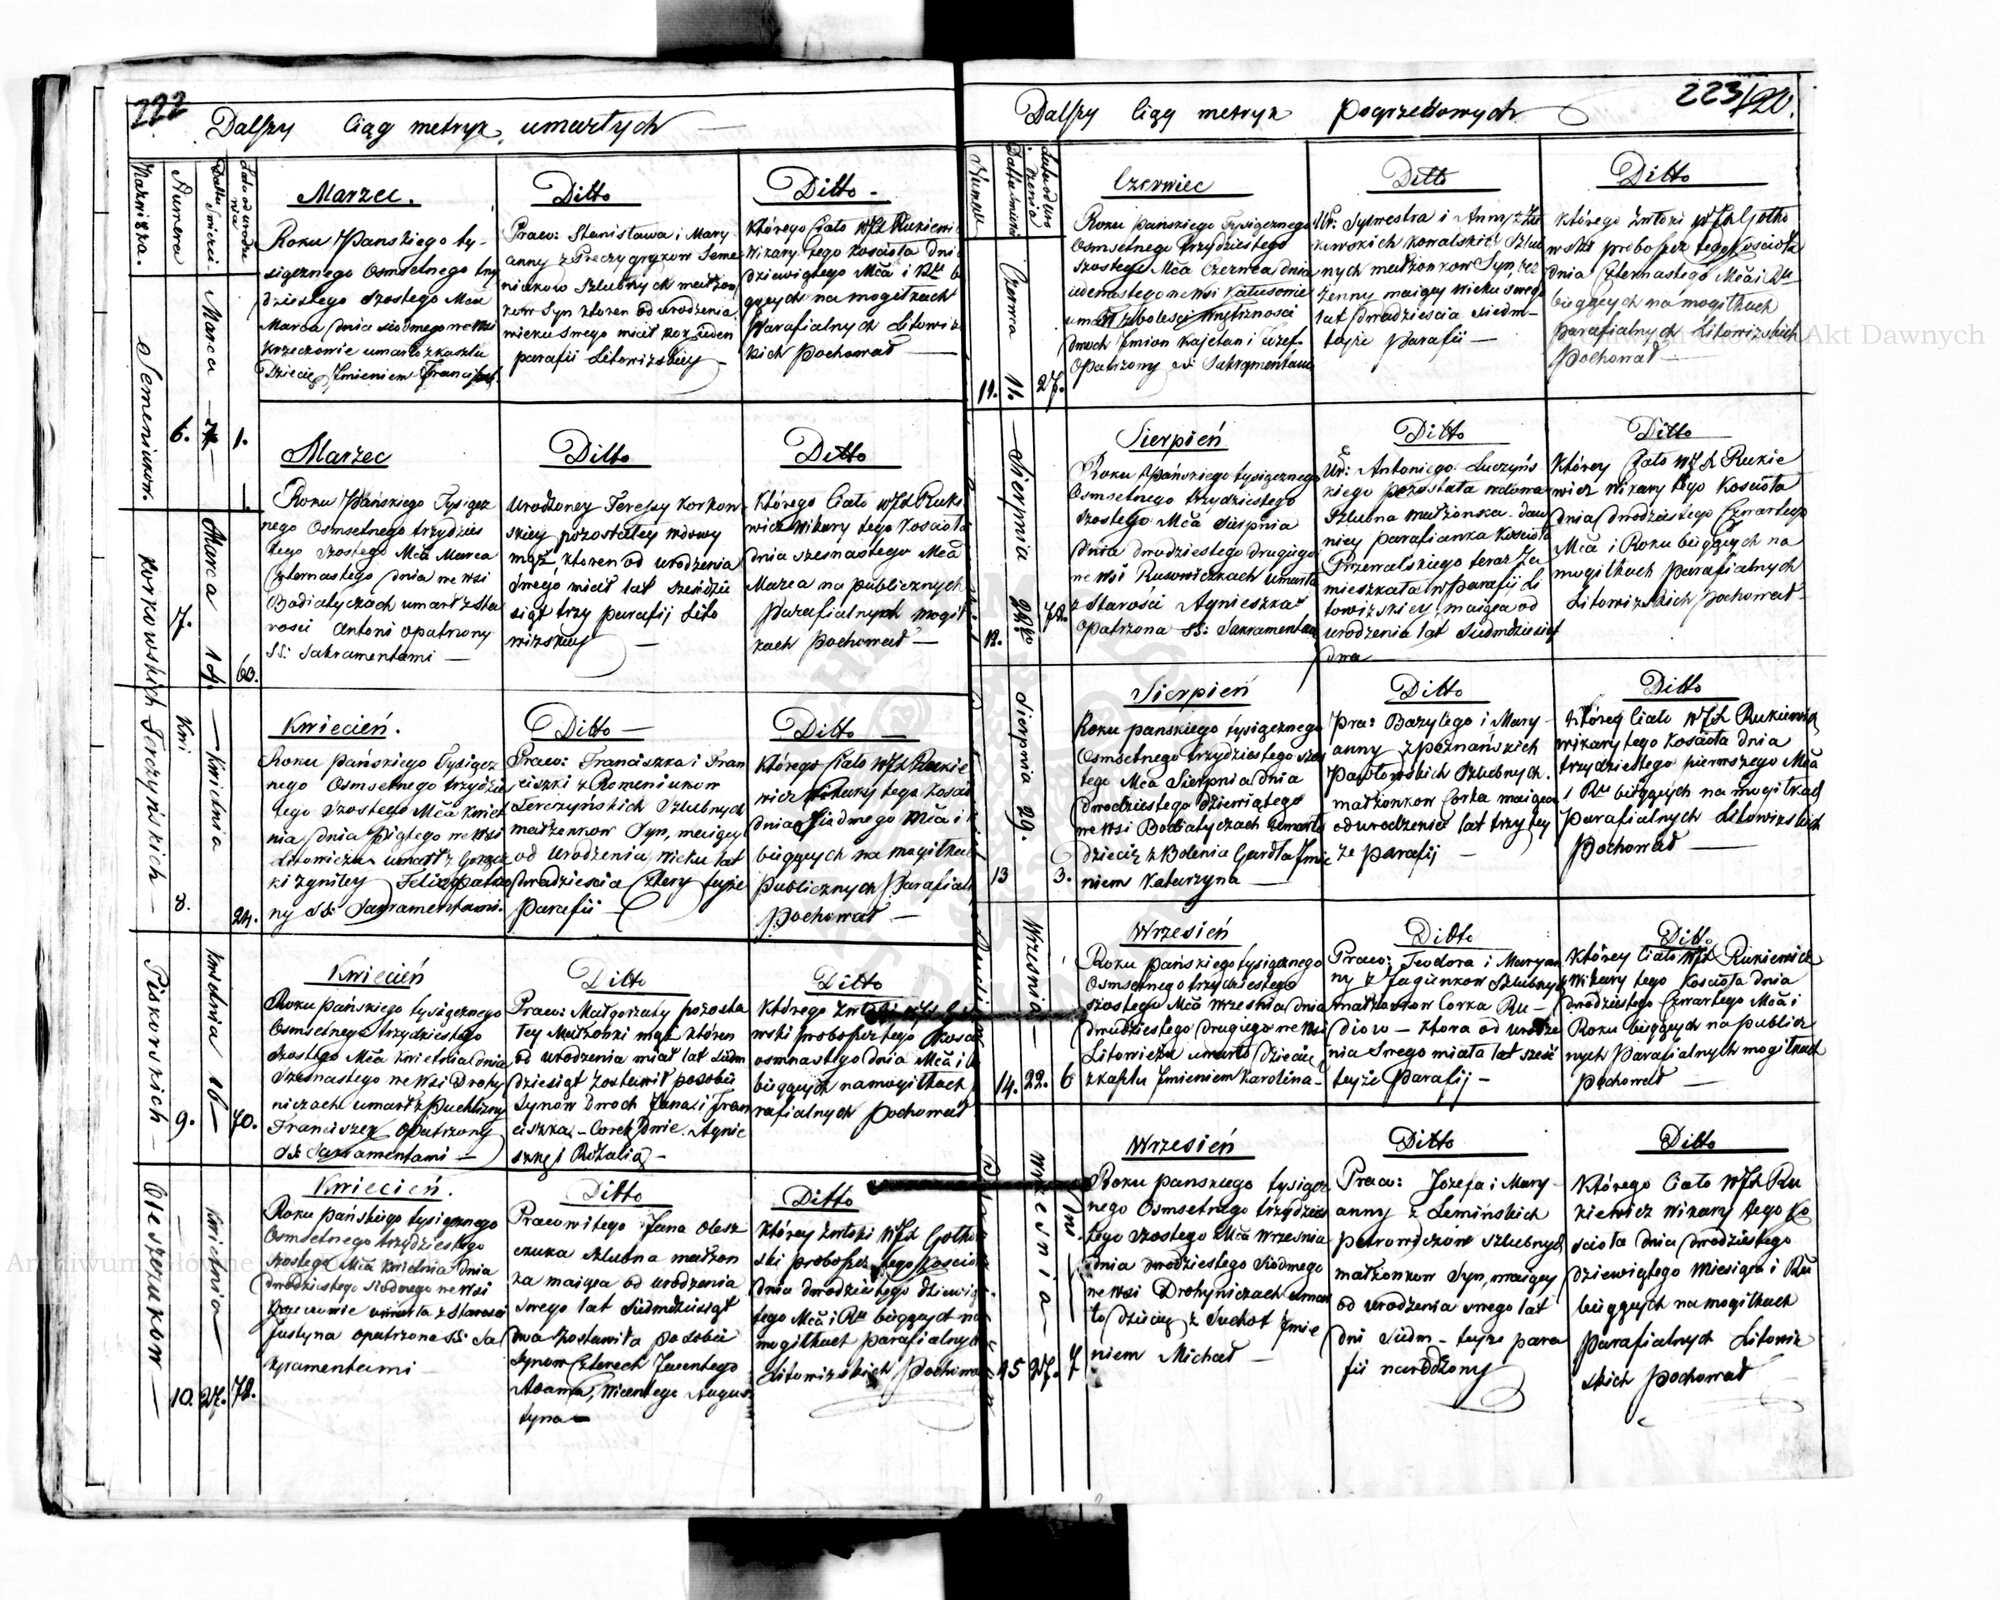 222
Dalszy Ciąg metryk umarłych
Nazwiska.
Numera
Data śmierci
Lata od urodzenia
Semeniukow
6.
Marca
1.
Marzec.
Roku Pańskiego ty-
sięcznego Osmsetnego trzy
dziestego szostego Mca
Marca dnia siodmego we wsi
Krzeczowie umarło z kaszlu
Dziecię Imieniem Franciszek
Ditto
Praco: Stanisława i Mary
anny z Seme
niukow Szlubnych małżon
kow Syn ktoren od urodzenia
wieku swego miał rok jeden
parafii Litowizkiey
Ditto
Którego Ciało WJX Rukiewicz
Wikary tego Kościoła dnia
dziewiątego Mca i Ru b
gących na mogiłkach
Parafialnych Litowiz
kich Pochował
Korkowskich
7.
Marca 14.
63.
Marzec
Roku Pańskiego Tysięcz
nego Osmsetnego trzydzies
tego szostego Mca Marca
Czternastego dnia we wsi
Bodiatyczach umarł z sta
rosci Antoni opatrzony
SS: Sakramentami
Ditto
Urodzoney Teressy Korkow
skiey pozostałey wdowy
mąż, ktoren od urodzenia
swego miał lat sześdzie
siąt trzy parafij Lito
wizskiey
Ditto
Którego Ciało WJX Ruki
wicz Wikary tego Kościoła
dnia szesnastego Mca
Marca na publicznych
Parafialnych mogił
kach Pochował
Terczyńskich
Kwi
8.
Kwietnia
24.
Kwiecień.
Roku Pańskiego Tysięcz
nego Osmsetnego trzydzies
tego szostego Mca Kwiet
nia dnia Piątego we wsi
Litowiczu umarł z Gorącz
ki zgniłey Felix opatrzo
ny SS: Sakramentami.
Ditto
Praco: Franciszka i Fran
ciszki z Romeniukow
Terczyńskich Szlubnych
małżonkow Syn, maiący
od Urodzenia wieku lat
dwadzieścia cztery teyże
Parafii
Ditto
Którego Ciało WJX Rukie
wicz Wikary tego Kościoła
dnia Siodmego Mca i
biegących na mogiłkach
Publicznych Parafial
Pochował
Piskorskich
9.
Kwietnia 16
70.
Kwiecień
Roku Pańskiego tysięcznego
Osmsetnego trzydziestego
szostego Mca Kwietnia dnia
Szesnastego we wsi Drohy
niczach umarł z Puchliny
Franciszek opatrzony
SS: Sakramentami
Ditto
Praco: Małgorzaty pozosta
łey Małżonki mąż ktoren
od urodzenia miał lat siedm
dziesiąt zostawił po sobie
Synow Dwoch Jana i Fran
ciszka, Corek dwie Agnie
szkę i Rozalią
Ditto
Którego Zwłoki WJX G
wski proboszcz tego Kości
osmnastego dnia Mca i b
bieggcych na mogiłkach
rafialnych Pochował
Oleszczukow
10.
Kwietnia
27.
72.
Kwiecień.
Roku Pańskiego tysięcznego
Osmsetnego trzydziestego
szostego Mca Kwietnia dnia
dwudziestego siodmego we wsi
Krzeczowie umarła z Starosci
Justyna opatrzona SS: Sa
kramentami
Ditto
Pracowitego Jana Olesz
czuka szlubna małżon
ka maiąca od urodzenia
swego lat siedmdziesiąt
dwa zostawiła po sobie
Synow Czterech
Adama, Wicentego Augus
tyna
Ditto
Którey Zwłoki WJX Gotko
ski proboszcz tego Kościoła
dnia dwudziestego dziewią
tego Mca i Ru bieggcych na
mogiłkach parafialnych
Litowizskich Pochował
223/120.
Dalszy Ciąg metryk Pogrzebowych
Numera
Data śmierci
Lata od uro
dzenia
11.
Czerwca 11.
27.
Czerwiec
Roku Pańskiego Tysięcznego
Osmsetnego trzydziestego
Szostego Mca Czerwca dnia
iedenastego we wsi
umarł z bolesci wnętrznosci
dwoch Imion Kajetan i Jozef
Opatrzony SS: Sakramentami
Ditto
Ur: Sylwestra i Anny z
Kowalskich Szlub
nych małżonkow Syn, bez
żenny maiący wieku swego
lat dwadzieścia siedm
teyże Parafii
Ditto
Którego Zwłoki WJX Gotko
wski proboszcz tego Kościoła
dnia Czternastego Mca i Ru
bieggcych na mogiłkach
Parafialnych Litowizskich
Pochował
12.
Sierpnia
72.
Sierpień
Roku Pańskiego tysięcznego
Osmsetnego trzydziestego
szostego Mca Sierpnia
Dnia dwudziestego drugiego
we wsi Rusowiczkach umarła
z Starości Agnieszka
opatrzona SS: Sakramentami
Ditto
Ur: Antoniego Luczyńs
kiego pozostała wdowa
Szlubna małżonka daw
niey parafianka Kościoła
Przewalskiego teraz za
mieszkała w Parafii Li
towizskiey maiąca od
urodzenia lat siedmdziesiąt
dwa
Ditto
Którey Ciało WJX Rukie
wicz Wikary tego Kościoła
dnia dwudziestego Czwartego
Mca i Roku bieggcych na
mogiłkach Parafialnych
Litowizskich Pochował
13
Sierpnia 29.
3.
Sierpień
Roku Pańskiego tysięcznego
Osmsetnego trzydziestego szos
tego Mca Sierpnia dnia
dwudziestego dziewiątego
we wsi Bodiatyczach umarło
dziecię z Bolenia Gardła Imie
niem Katarzyna
Ditto
Pra: Bazylego i Mary
anny z Poznańskich
Pawłowskich Szlubnych
małżonkow Corka maiąca
od urodzenia lat trzy tey
że Parafij
Ditto
Którey Ciało WJX Rukiewicz
wikary tego Kościoła dnia
trzydziestego pierwszego Mca
i Ru bieggcych na mogiłkach
Parafialnych Litowizskich
Pochował
14.
Wrzesnia
22.
6
Wrzesień
Roku Pańskiego tysięcznego
Osmsetnego trzydziestego
szostego Mca Wrzesnia dnia
dwudziestego drugiego we wsi
Litowiczu umarło Dziecię
z kaszlu Imieniem Karolina
Ditto
Praco: Teodora i Maryan
ny z Jagienkow Szlubnych
małżonkow Corka Ru
diow ktora od urodze
nia swego miała lat sześć
teyże Parafij
Ditto
Którey Ciało WJX Rukiewicz
Wikary tego Kościoła dnia
dwudziestego Czwartego Mca i
Roku bieggcych na public
nych Parafialnych mogiłkach
Pochował
15
Wrzesnia
27.
7
Wrzesień
Roku Pańskiego tysięcz
nego Osmsetnego trzydzies
tego szostego Mca Wrzesnia
dnia dwudziestego Siodmego
we wsi Drohyniczach umar
ło Dziecię z Suchot Imie
niem Michał
Ditto
Praco: Józefa i Mary
anny z Lemińskich
Petrowiczow Szlubnych
małżonkow Syn, maiący
od urodzenia swego lat
dni siedm teyże para
fii narodzony
Ditto
Którego Ciało WJX Ru
kiewicz Wikary tego Ko
scioła dnia dwudziestego
dziewiątego Miesiąca i Ru
bieggcych na mogiłkach
Parafialnych Litowiz
skich Pochował
Archiwum Główne Akt Dawnych